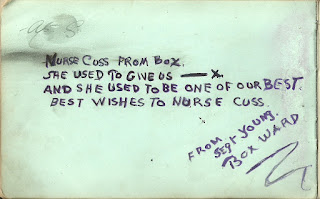 NURSE CUSS FROM BOX.
SHE USED TO GIVE US — X.
AND SHE USED TO BE ONE OF OUR BEST.
BEST WISHES TO NURSE CUSS.
FROM
SEPT YOUNG.
BOX WARD